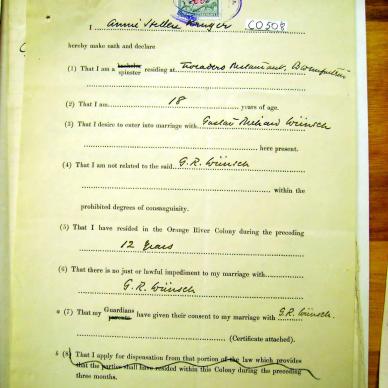 I Annie Hellene Kruger CO 508
hereby make oath and declare
(1) That I am a bachelor spinster residing at Restaurant, Bloemfontein
(2) That I am 18 years of age.
(3) That I desire to enter into marriage with Gustav Richard Wünsch
here present.
(4) That I am not related to the said G. R. Wünsch
within the
prohibited degrees of consanguinity.
(5) That I have resided in the Orange River Colony during the preceding
12 Years
(6) That there is no just or lawful impediment to my marriage with
G. R. Wünsch
(7) That my Guardians parents have given their consent to my marriage with G. R. Wünsch.
(Certificate attached).
(8) That I apply for dispensation from that portion of the law which provides
that the parties shall have resided within this Colony during the preceding
three months.